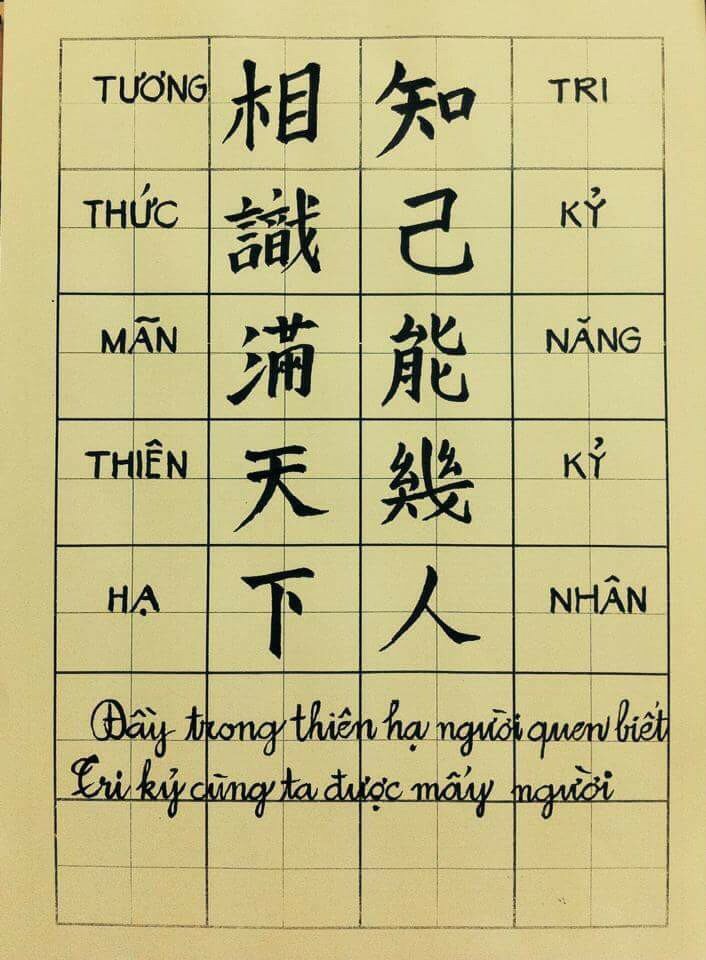 TƯƠNG 相 知 TRI
THỨC 識 己 KỶ
MÃN 滿 能 NĂNG
THIÊN 天 幾 KỶ
HẠ 下 人 NHÂN
Đầy trong thiên hạ người quen biết
Tri kỷ cùng ta được mấy người